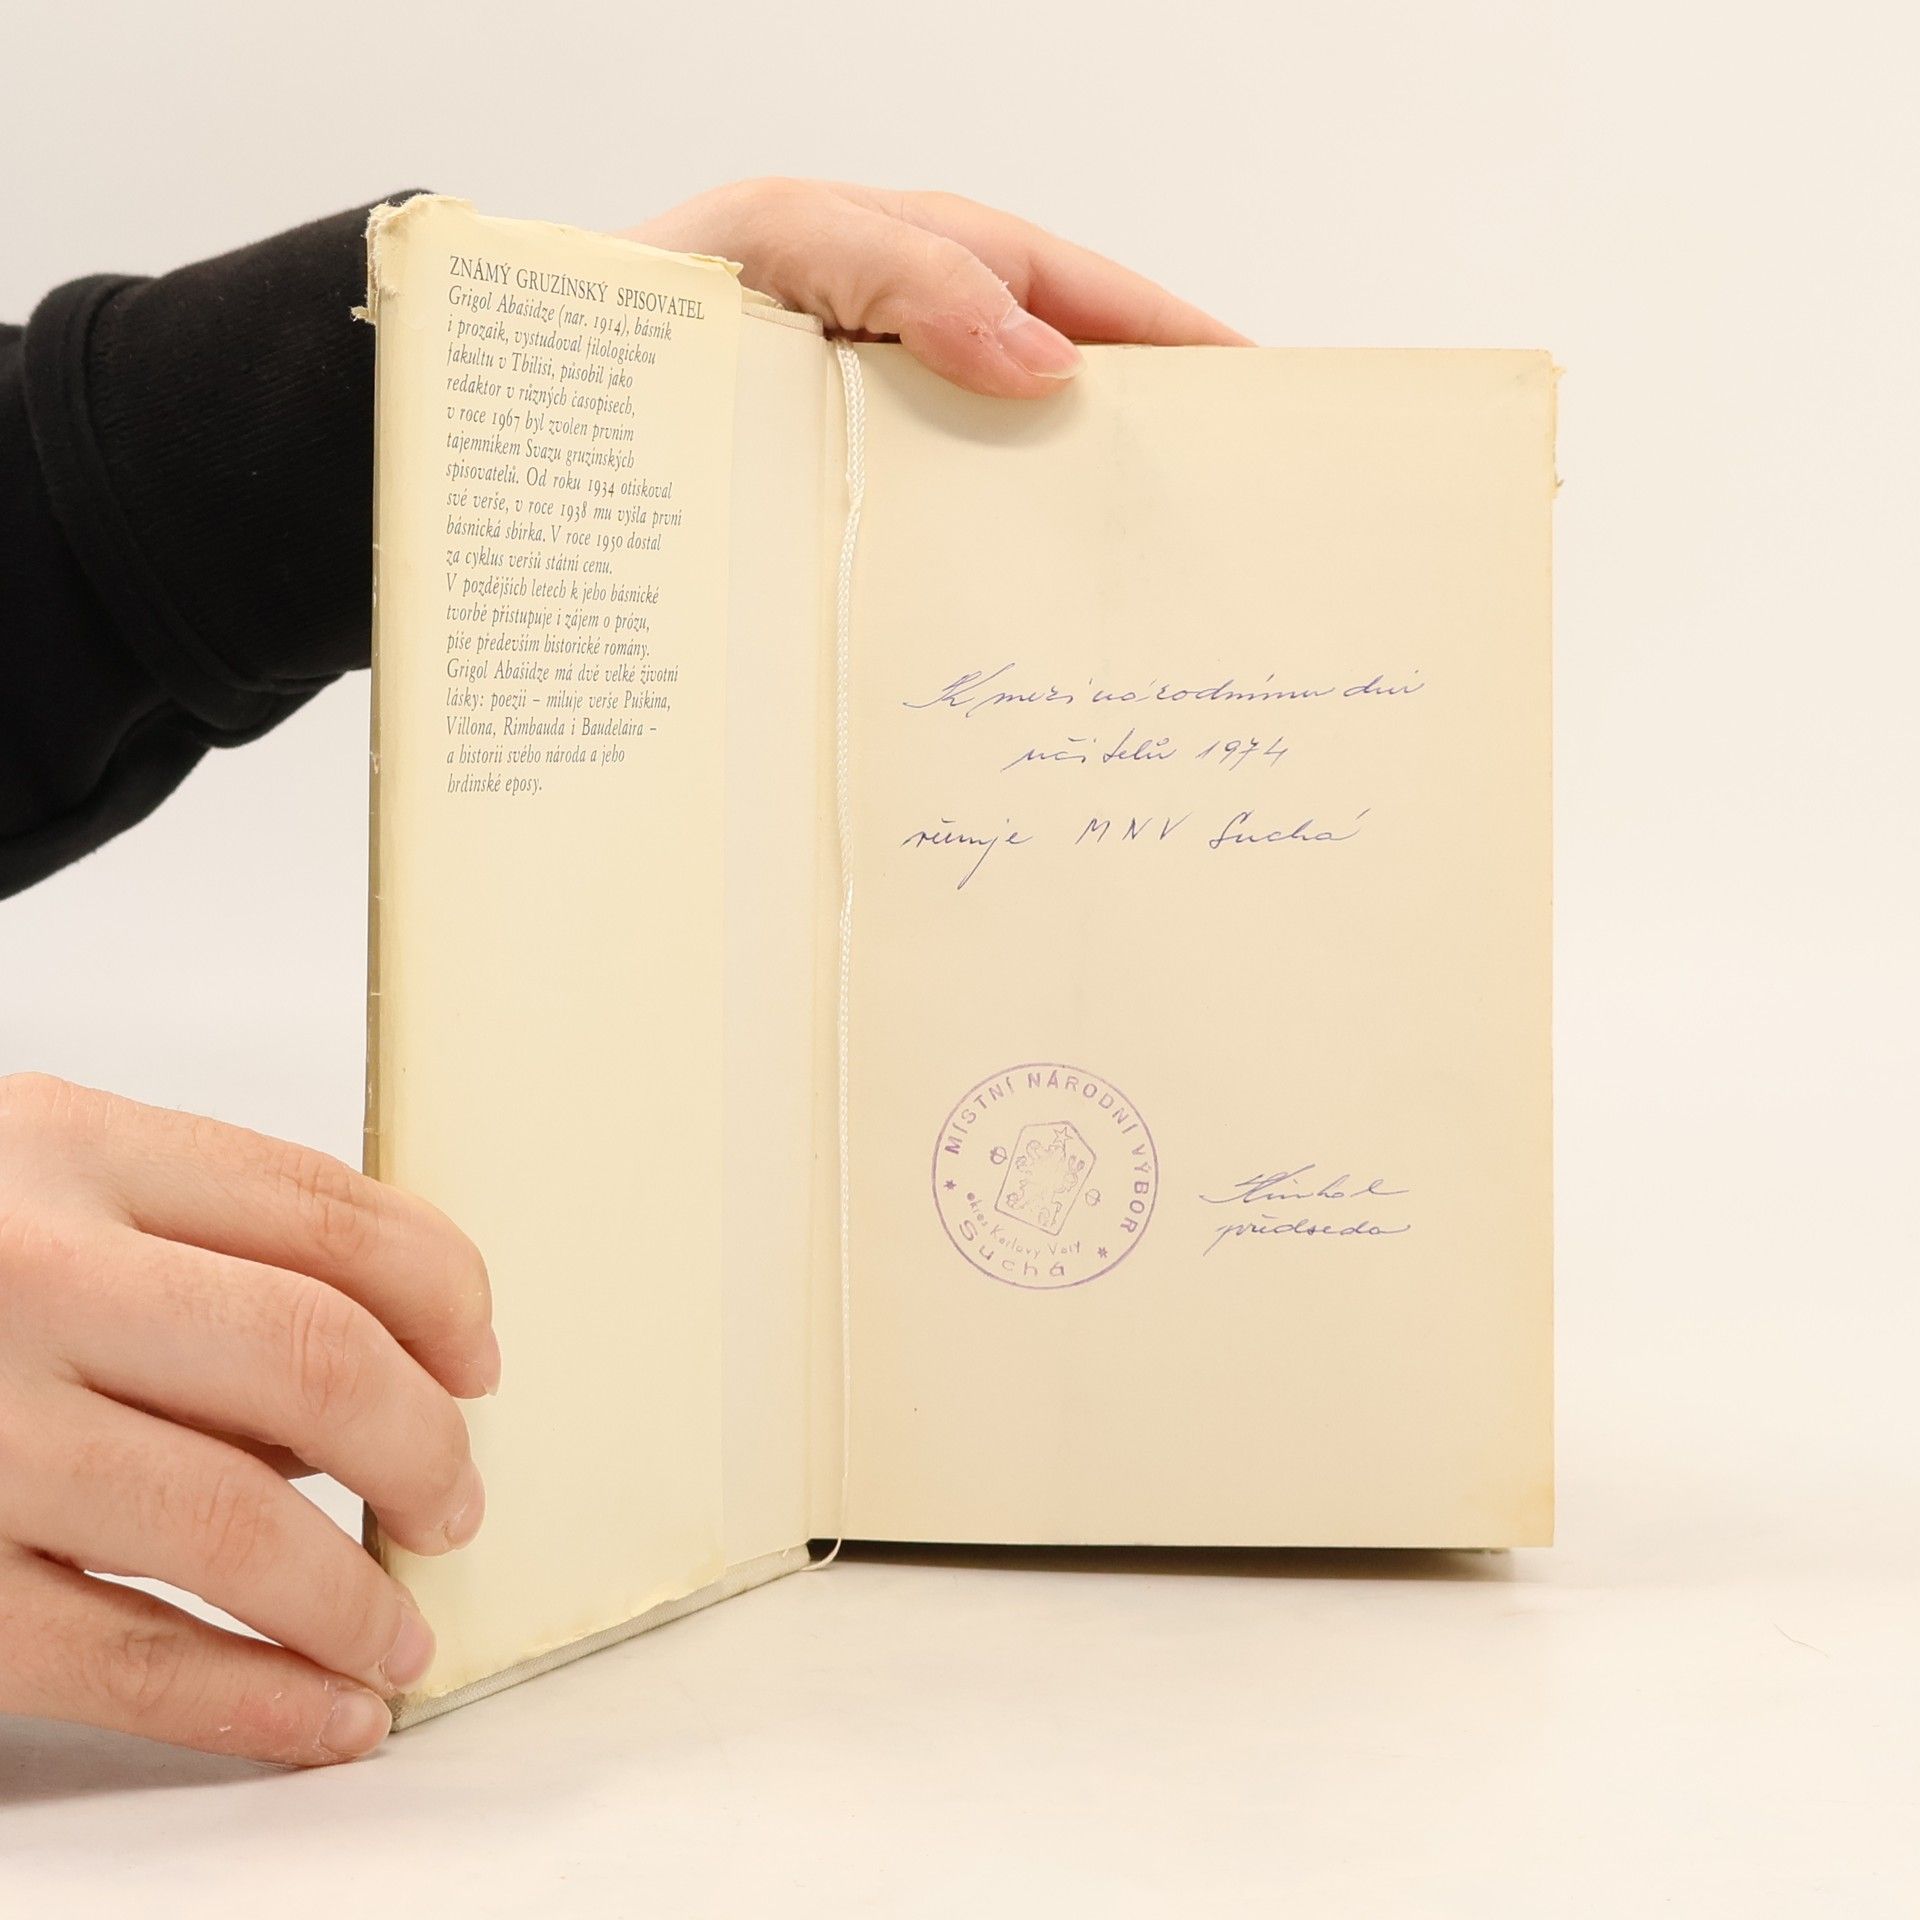 ZNÁMÝ GRUZÍNSKÝ SPISOVATEL
Grigol Abašidze (nar. 1914), básník
i prozaik, vystudoval filologickou
fakultu v Tbilisi, působil jako
redaktor v různých časopisech,
v roce 1967 byl zvolen prvním
tajemníkem Svazu gruzínských
spisovatelů. Od roku 1934 otiskoval
své verše, v roce 1938 mu vyšla první
básnická sbírka. V roce 1950 dostal
za cyklus veršů státní cenu.
V pozdějších letech k jeho básnické
tvorbě přistupuje i zájem o prózu,
píše především historické romány.
Grigol Abašidze má dvě velké životní
lásky: poezii – miluje verše Puškina,
Villona, Rimbauda i Baudelaira –
a historii svého národa a jeho
hrdinské eposy.
K mezinárodnímu dni
učitelů 1974
věnuje MNV Suchá
MÍSTNÍ NÁRODNÍ VÝBOR
okres Karlovy Vary
Suchá
předseda